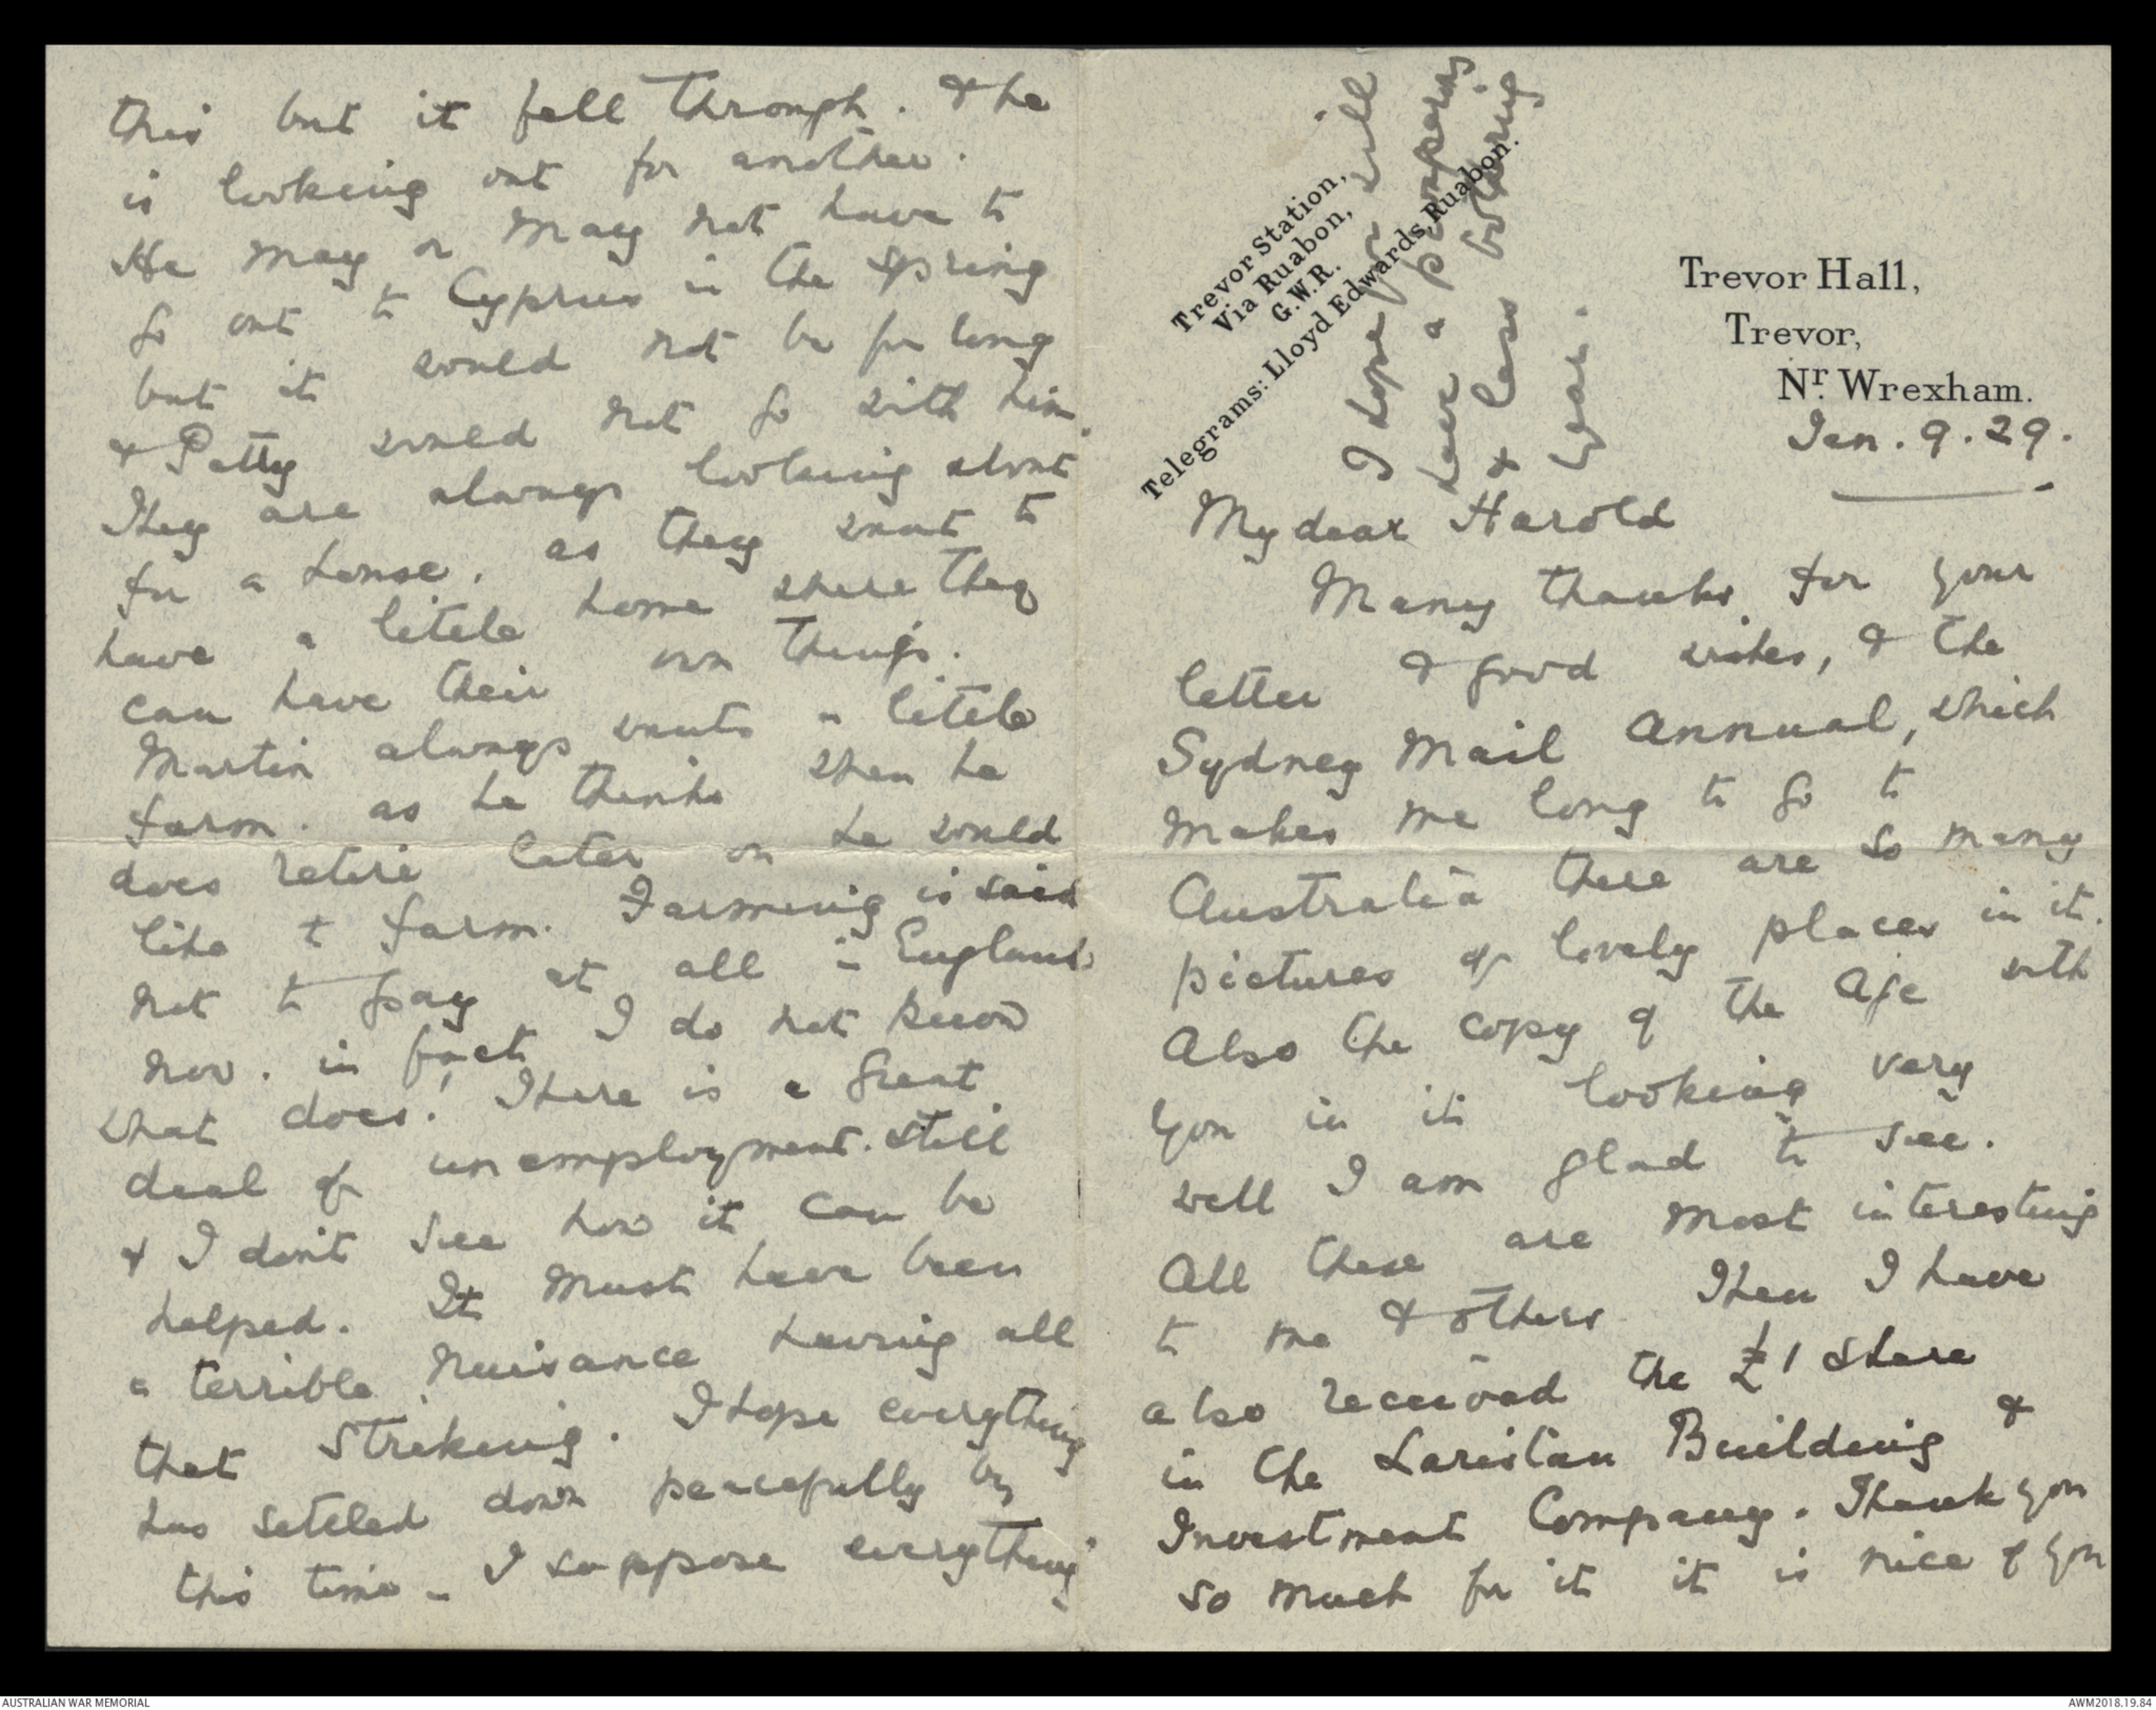 this but it fell through. & he
is looking out for another.
He may or may not have to
go out to Cyprus in the spring
but it would not be for long
& Petty would not go with him.
They are always looking about
for a house. as they want to
have a little home where they
can have their own things.
Martin always wants a little
farm. as he thinks when he
does retire later on he would
like to farm. Farming is said
not to pay at all in England
now. in fact I do not know
what does! There is a great
deal of unemployment. still
& I don't see how it can be
helped. It must have been
a terrible nuisance having all
that striking. I hope everything
has settled down peacefully by
this time - I suppose everything
Trevor Station,
Via Ruabon,
G.W.R.
Telegrams: Lloyd Edwards, Ruabon.
I hope you will
have a prosperous
& less bothering
year.
Trevor Hall,
Trevor,
Nr. Wrexham.
Jan. 9. 29.
My dear Harold
Many thanks for your
letter & good wishes, & the
Sydney Mail Annual, which
makes me long to go to
Australia there are so many
pictures of lovely places in it.
Also the copy of the Age with
you in it looking very
well I am glad to see.
All these are most interesting
to me & others. Then I have
also received the £1 share
in the Laristan Building &
Investment Company. Thank you
so much for it it is nice of you
AUSTRALIAN WAR MEMORIAL
AWM2018.19.84